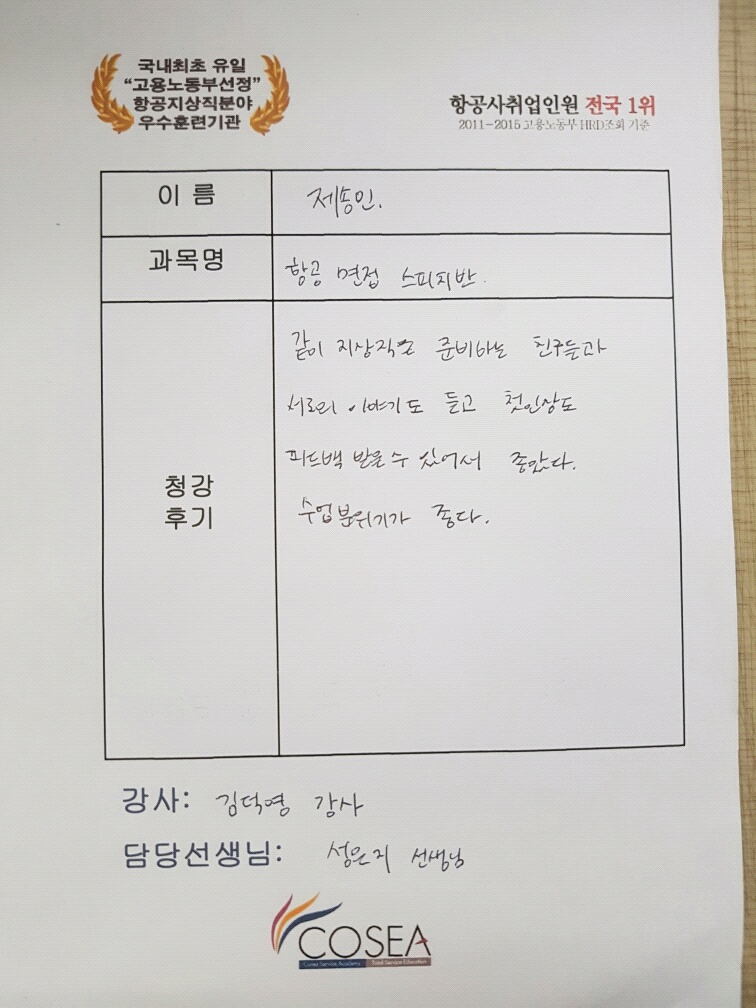 국내최초 유일
“고용노동부선정”
항공지상직분야
우수훈련기관
항공사취업인원 전국 1위
2011-2015 고용노동부 HRD조회 기준
이 름
제송인.
과목명
항공 면접 스피치반.
청강
후기
같이 지상직을 준비하는 친구들과
서로의 이야기도 듣고 첫인상도
피드백 받을 수 있어서 좋았다.
수업분위기가 좋다.
강사: 김덕영 강사
담당선생님: 성은지 선생님
COSEA
Corea Service Academy Total Service Education